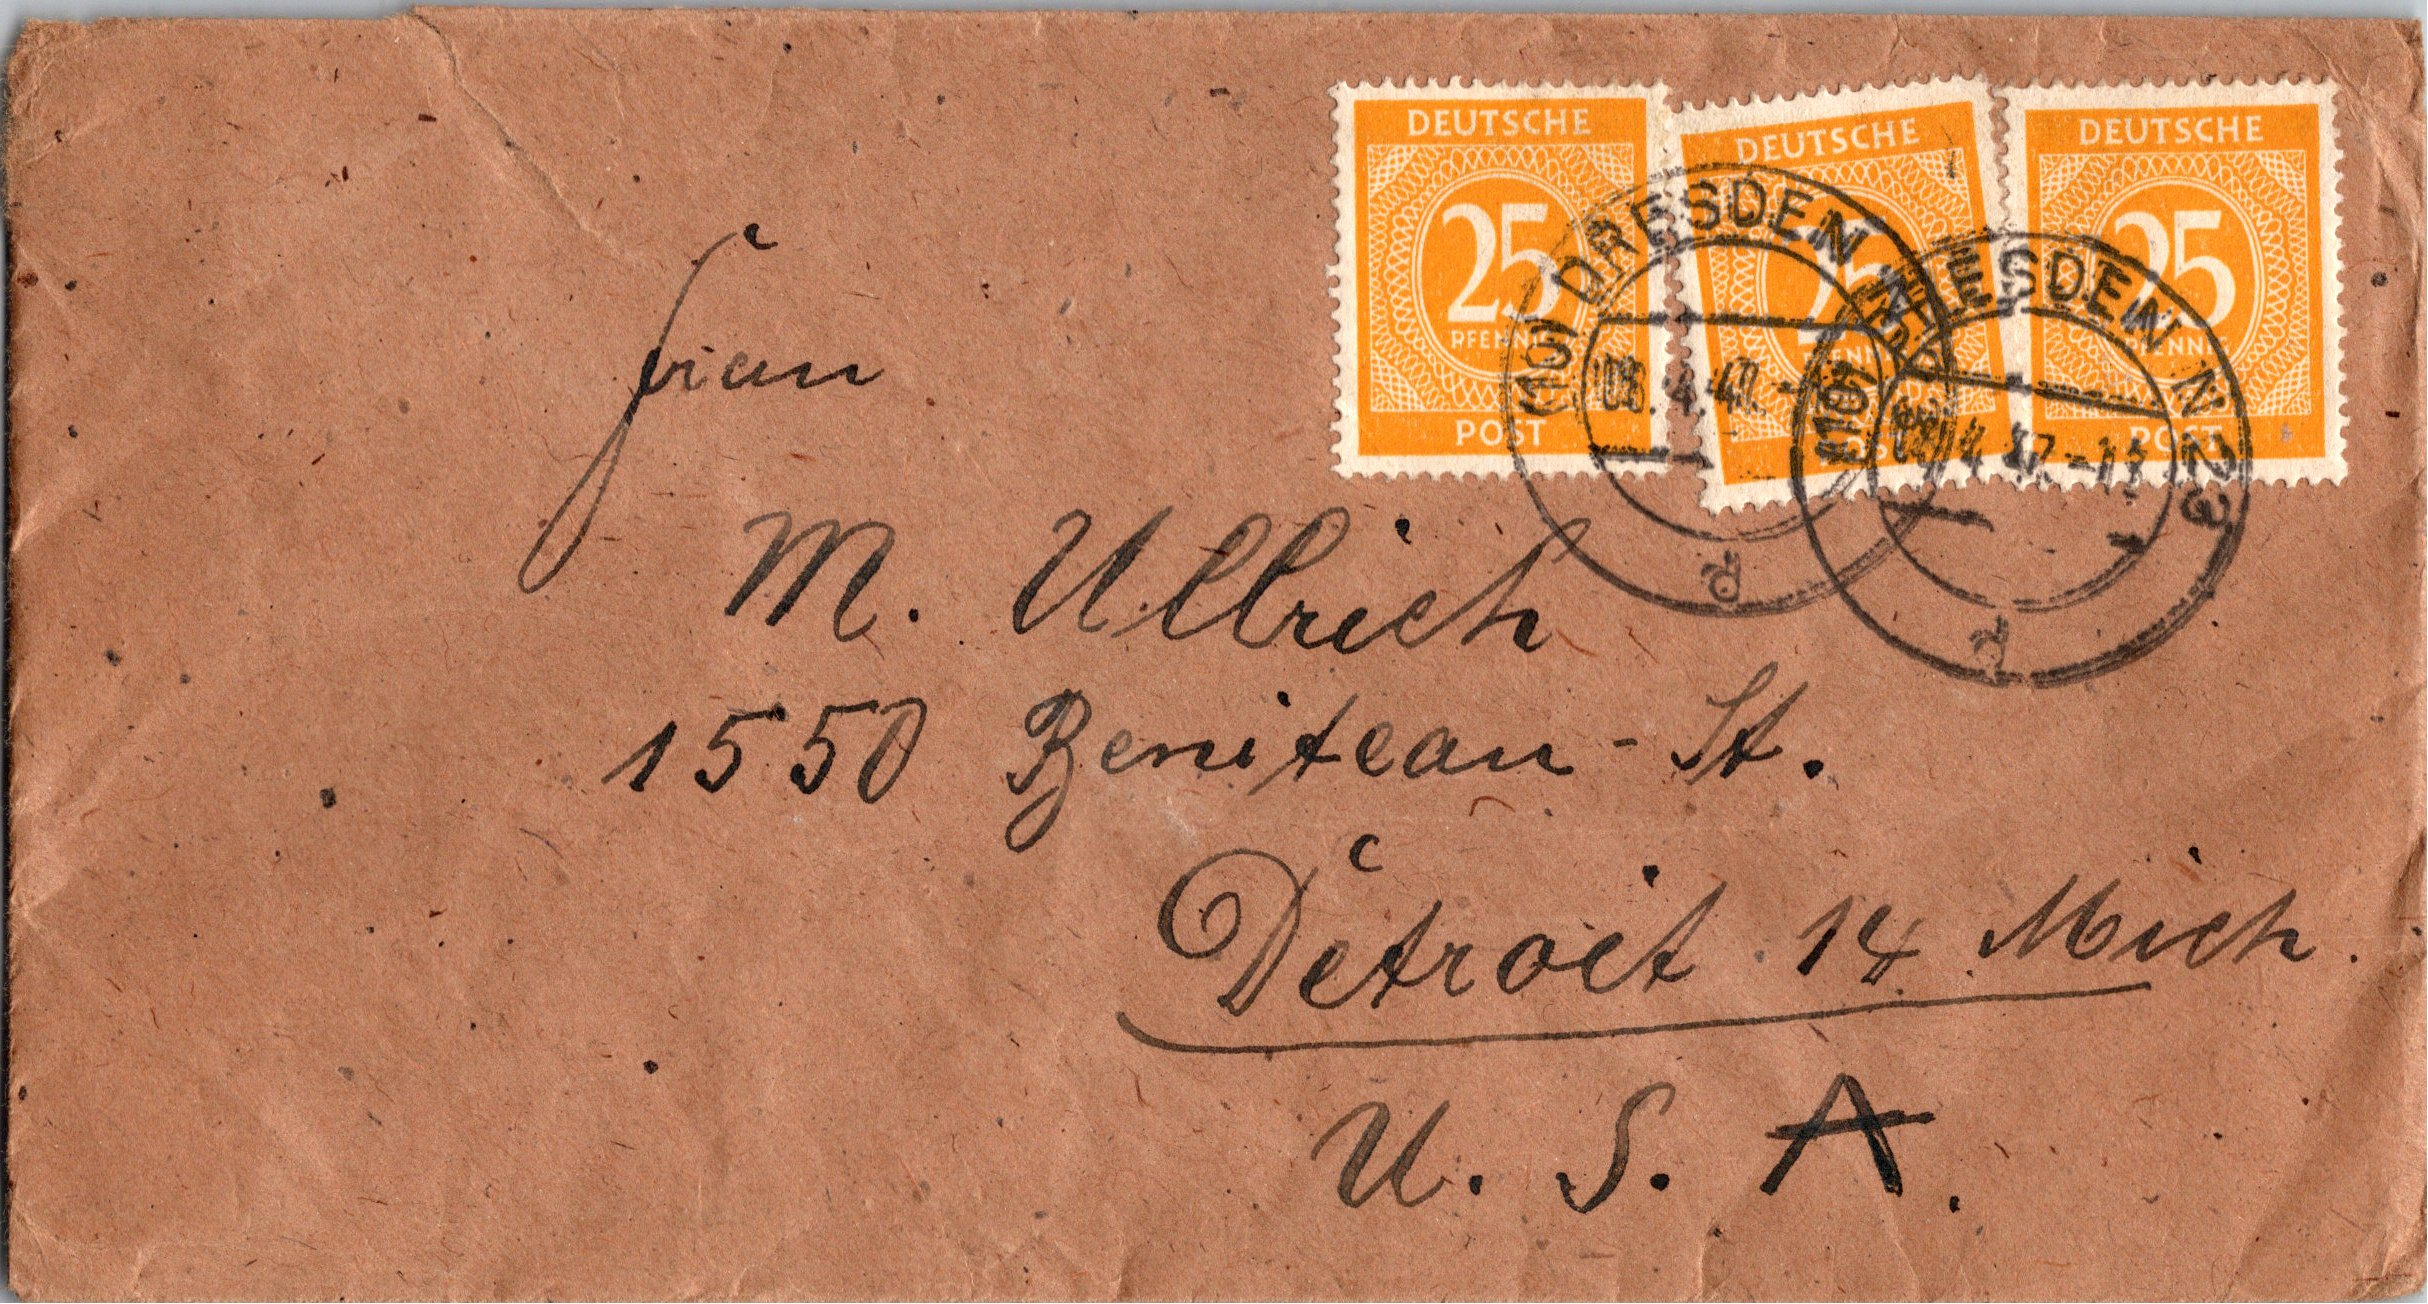 DEUTSCHE
25
PFENNIG
POST
DEUTSCHE
25
PFENNIG
POST
DEUTSCHE
25
PFENNIG
POST
(10) DRESDEN N
(10) DRESDEN N 23
a
a
Frau
M. Ullrich
1550 Beniteau-St.
Detroit 14 Mich.
U. S. A.